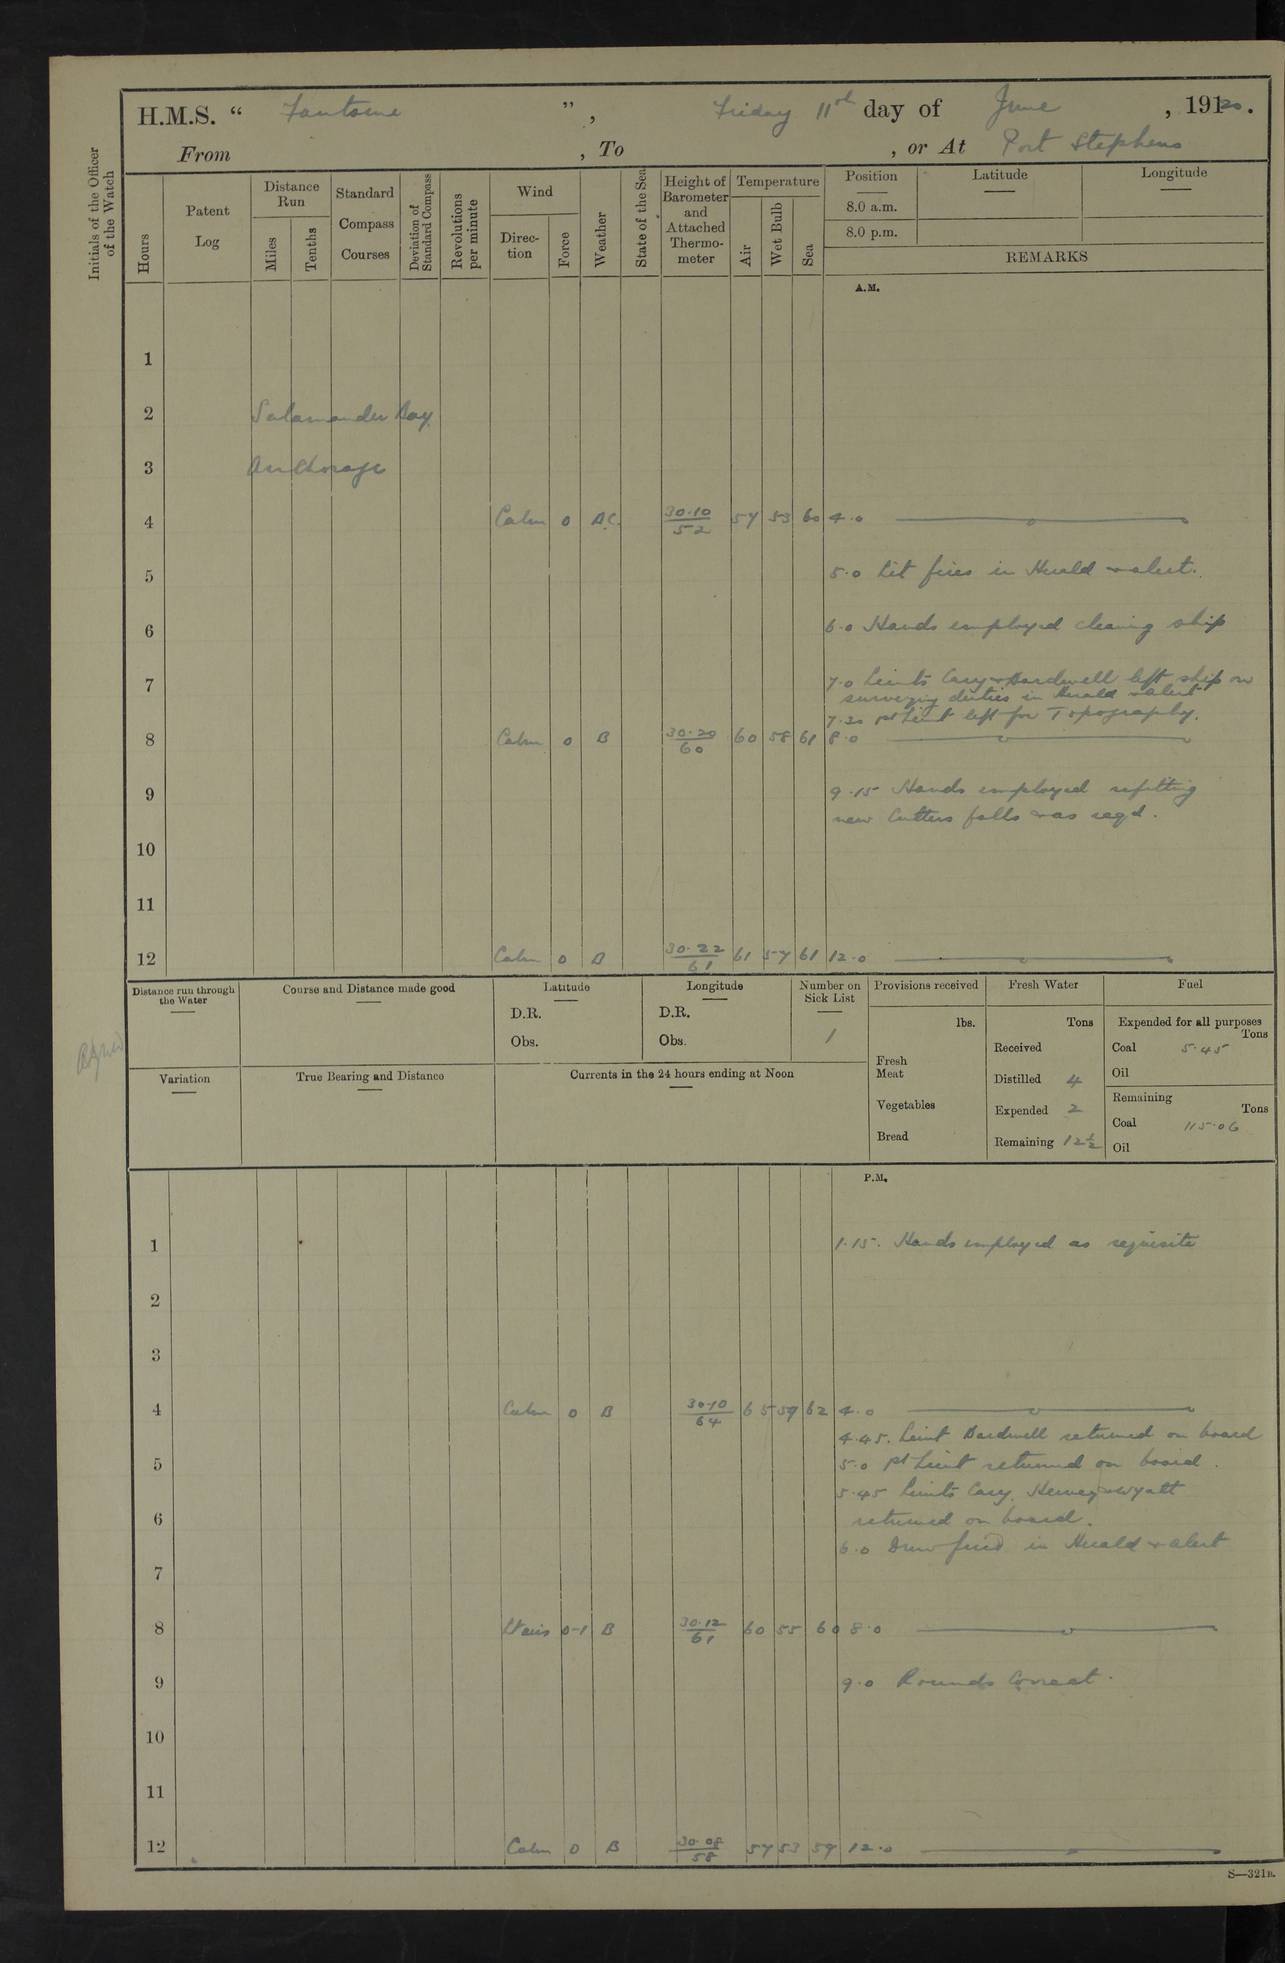 H.M.S. “ Fantome ”, Friday 11th day of June, 1920.
From , To , or At Port Stephens
Initials of the Officer of the Watch
Hours
Patent Log
Distance Run
Miles
Tenths
Standard Compass Courses
Deviation of Standard Compass
Revolutions per minute
Wind
Direction
Force
Weather
State of the Sea
Height of Barometer and Attached Thermometer
Temperature
Air
Wet Bulb
Sea
Position Latitude Longitude
8.0 a.m.
8.0 p.m.
REMARKS
A.M.
1
2 Salamander Bay
3 Anchorage
4 Calm 0 BC. 30.10/52 57 53 60 4.0
5 5.0 Lit fires in Herald & Alert.
6 6.0 Hands employed cleaning ship
7 7.0 Lieuts Cary & Bardwell left ship on
surveying duties in Herald & Alert
7.30 1st Lieut left for Topography.
8 Calm 0 B 30.20/60 60 58 61 8.0
9 9.15 Hands employed refitting
new Cutters falls & as reqd.
10
11
12 Calm 0 B 30.22/61 61 57 61 12.0
Distance run through the Water
Course and Distance made good
Latitude
D.R.
Obs.
Longitude
D.R.
Obs.
Number on Sick List
1
Provisions received
lbs.
Fresh Meat
Vegetables
Bread
Fresh Water
Tons
Received
Distilled 4
Expended 2
Remaining 12½
Fuel
Expended for all purposes
Tons
Coal 5.45
Oil
Remaining
Tons
Coal 115.06
Oil
Variation
True Bearing and Distance
Currents in the 24 hours ending at Noon
P.M.
1 1.15. Hands employed as requisite
2
3
4 Calm 0 B 30.10/64 65 59 62 4.0
4.45. Lieut Bardwell returned on board
5 5.0 1st Lieut returned on board.
5.45 Lieuts Cary, Hervey & Wyatt
6 returned on board.
6.0 Drew fires in Herald & Alert
7
8 Lt airs 0-1 B 30.12/61 60 55 60 8.0
9 9.0 Rounds Correct.
10
11
12 Calm 0 B 30.08/58 57 53 59 12.0
S—321B.